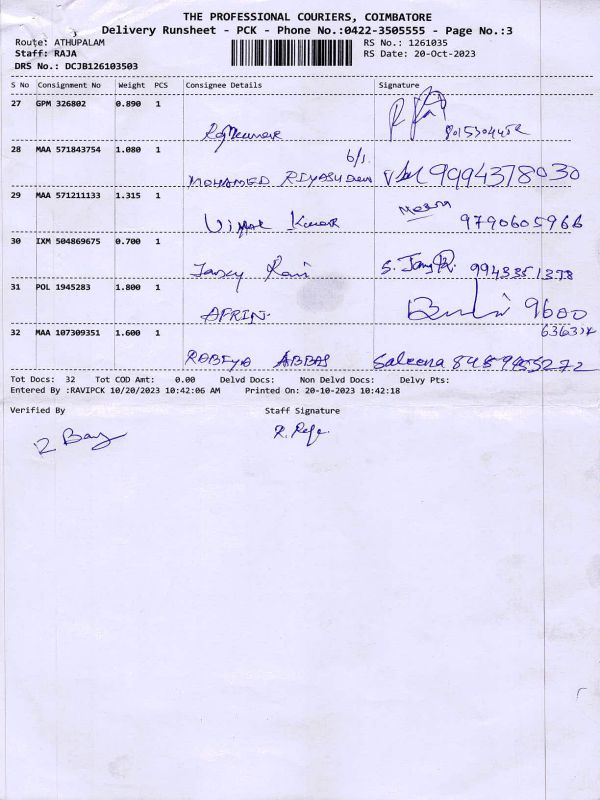 THE PROFESSIONAL COURIERS, COIMBATORE
Delivery Runsheet - PCK - Phone No.:0422-3505555 - Page No.:3
Route: ATHUPALAM
RS No.: 1261035
Staff: RAJA
RS Date: 20-Oct-2023
DRS No.: DCJB126103503
S No Consignment No Weight PCS Consignee Details Signature
27 GPM 326802 0.890 1
28 MAA 571843754 1.080 1
MOHAMED 9994378030
29 MAA 571211133 1.315 1
Kumar 9790605966
30 IXM 504869675 0.700 1
Rani 9943351378
31 POL 1945283 1.800 1
AFRIN 9600
32 MAA 107309351 1.600 1
RABIYA ABBAS Saleena
Tot Docs: 32 Tot COD Amt: 0.00 Delvd Docs: Non Delvd Docs: Delvy Pts:
Entered By :RAVIPCK 10/20/2023 10:42:06 AM Printed On: 20-10-2023 10:42:18
Verified By Staff Signature